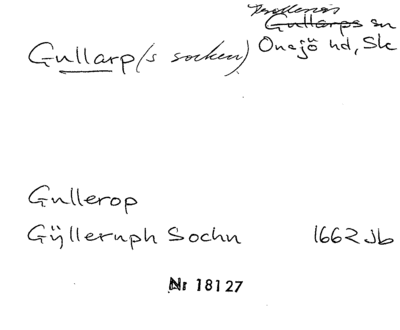 Gullarp (s socken)
Gullarps sn
Onsjö hd, Sk
Gullerop
Gÿlleruph Sochn 1662 Jb
Nr 18127